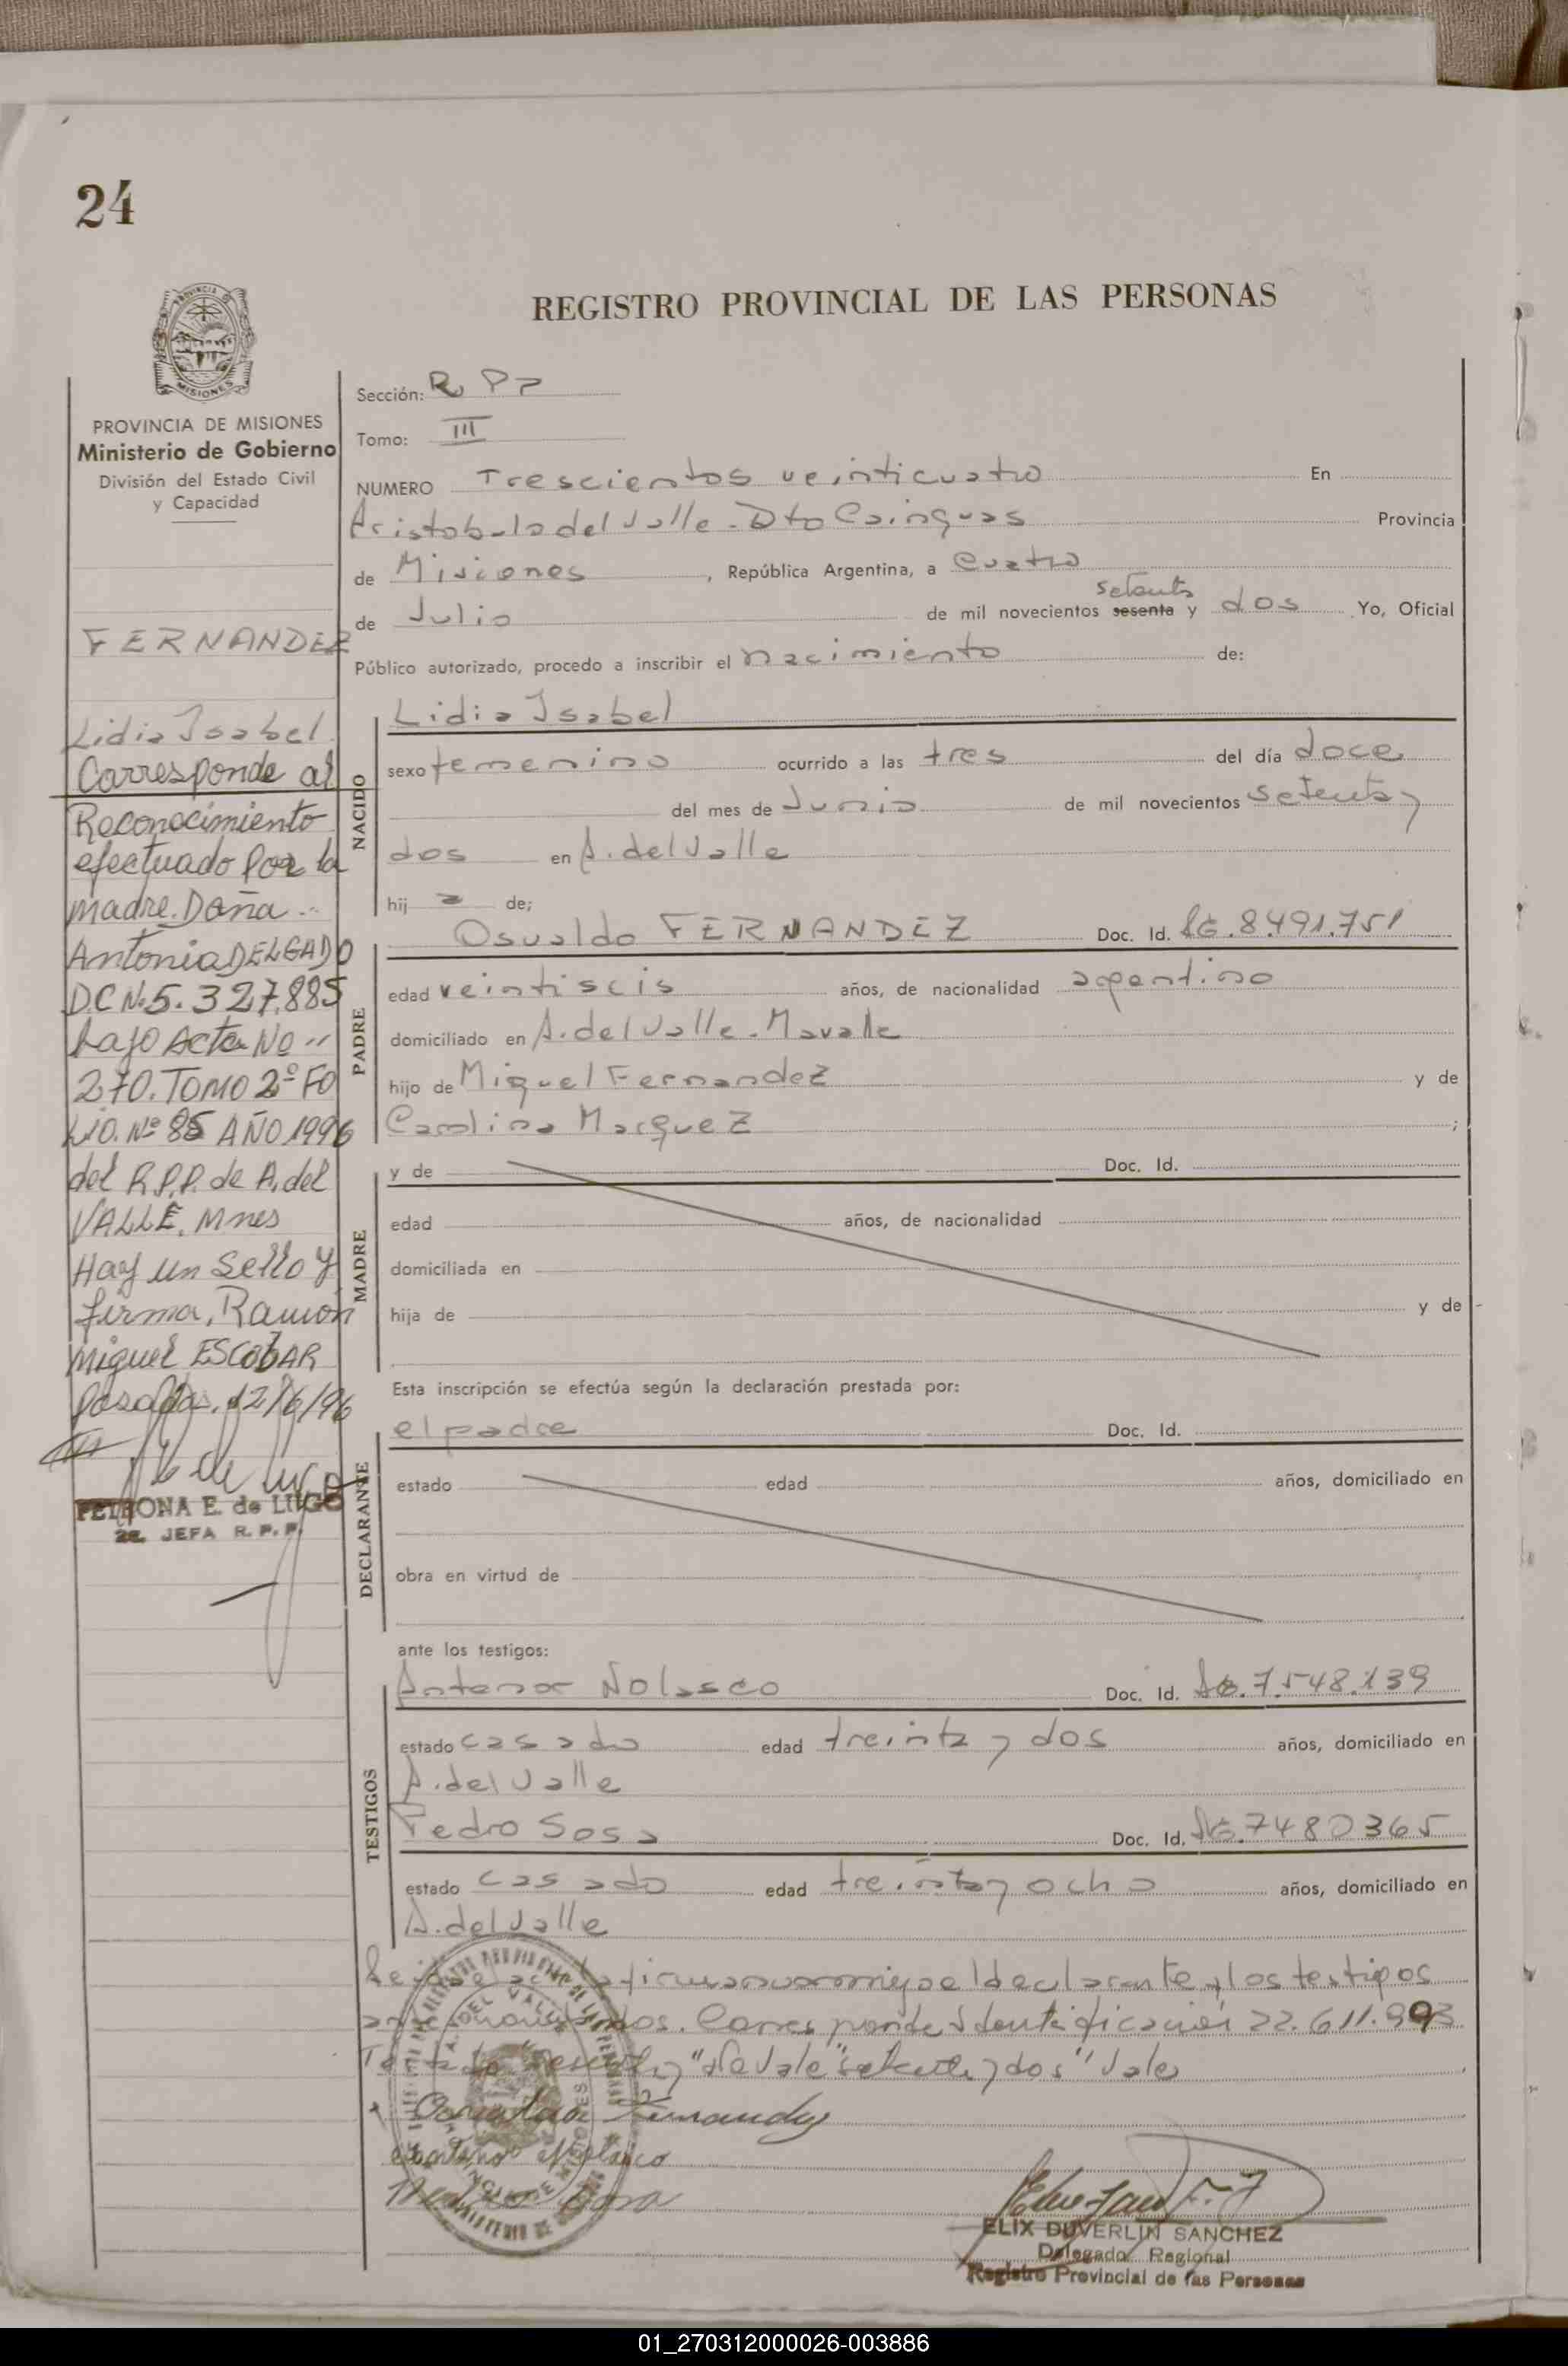 24
REGISTRO PROVINCIAL DE LAS PERSONAS
PROVINCIA DE MISIONES
Ministerio de Gobierno
División del Estado Civil
y Capacidad
FERNANDEZ
Lidia Isabel
Corresponde al
Reconocimiento
efectuado por la
madre. Doña
Antonia DELGADO
D.C Nº 5.327.885
bajo Acta No
270. TOMO 2º FO
LIO. Nº 85 AÑO 1996
del R.P.P. de A. del
VALLE. Mnes
Hay un Sello y
firma, Ramón
Miguel ESCOBAR
Posadas. 12/6/96
PETRONA E. de LUGO
2a. JEFA R. P. P.
Sección: R P P
Tomo: III
NUMERO Trescientos veinticuatro En
Aristobulo del Valle - Dto Cainguas Provincia
de Misiones, República Argentina, a cuatro
setenta
de Julio de mil novecientos sesenta y dos Yo, Oficial
Público autorizado, procedo a inscribir el nacimiento de:
NACIDO
Lidia Isabel
sexo femenino ocurrido a las tres del día doce
del mes de Junio de mil novecientos setenta y
dos en A. del Valle
hij a de;
PADRE
Osvaldo FERNANDEZ Doc. Id. 8.491.751
edad veintiseis años, de nacionalidad argentino
domiciliado en A. del Valle
hijo de Miguel Fernandez y de
Carolina Marquez ;
MADRE
y de Doc. Id.
edad años, de nacionalidad
domiciliada en
hija de y de
Esta inscripción se efectúa según la declaración prestada por:
DECLARANTE
el padre Doc. Id.
estado edad años, domiciliado en
obra en virtud de
ante los testigos:
TESTIGOS
Antenor Nolasco Doc. Id. 7.548.139
estado casado edad treinta y dos años, domiciliado en
A. del Valle
Pedro Sosa Doc. Id. 7480365
estado casado edad treinta y ocho años, domiciliado en
A. del Valle
Leida el acta firman conmigo el declarante y los testigos
antes nombrados. Corresponde Identificación 22.611.993
Testado "sesenta" "No Vale" "setenta y dos" Vale
Fernandez
Nolasco
Sosa
ELIX DUVERLIN SANCHEZ
Delegado Regional
Registro Provincial de las Personas
01_270312000026-003886